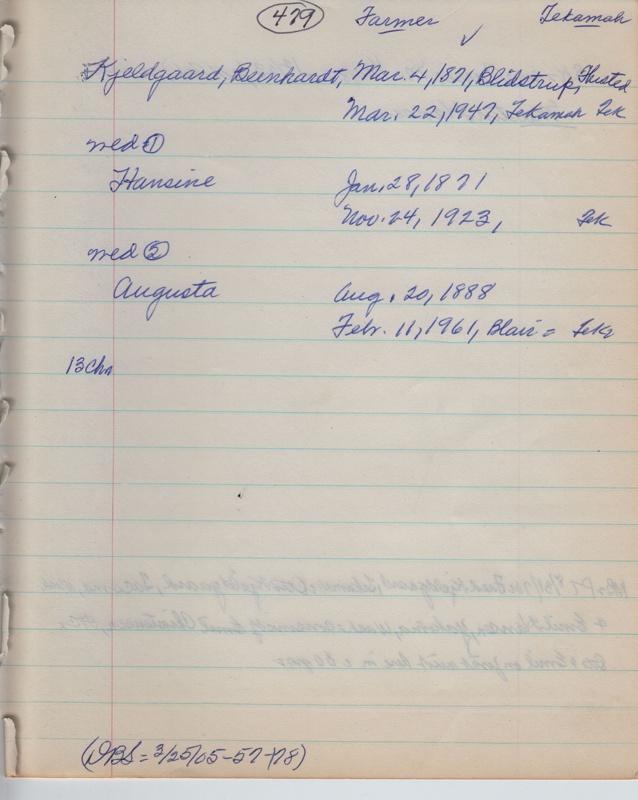 479 Farmer Tekamah
Kjeldgaard, Bernhardt, Mar. 4, 1871, Blidstrup, Thisted
Mar. 22, 1947, Tekamah Tek
med 1
Hansine Jan. 28, 1871
Nov. 24, 1923, Tek
med 2
Augusta Aug. 20, 1888
Febr. 11, 1961, Blair = Tek
13 Chn
(DBS = 3/25/05-57-78)